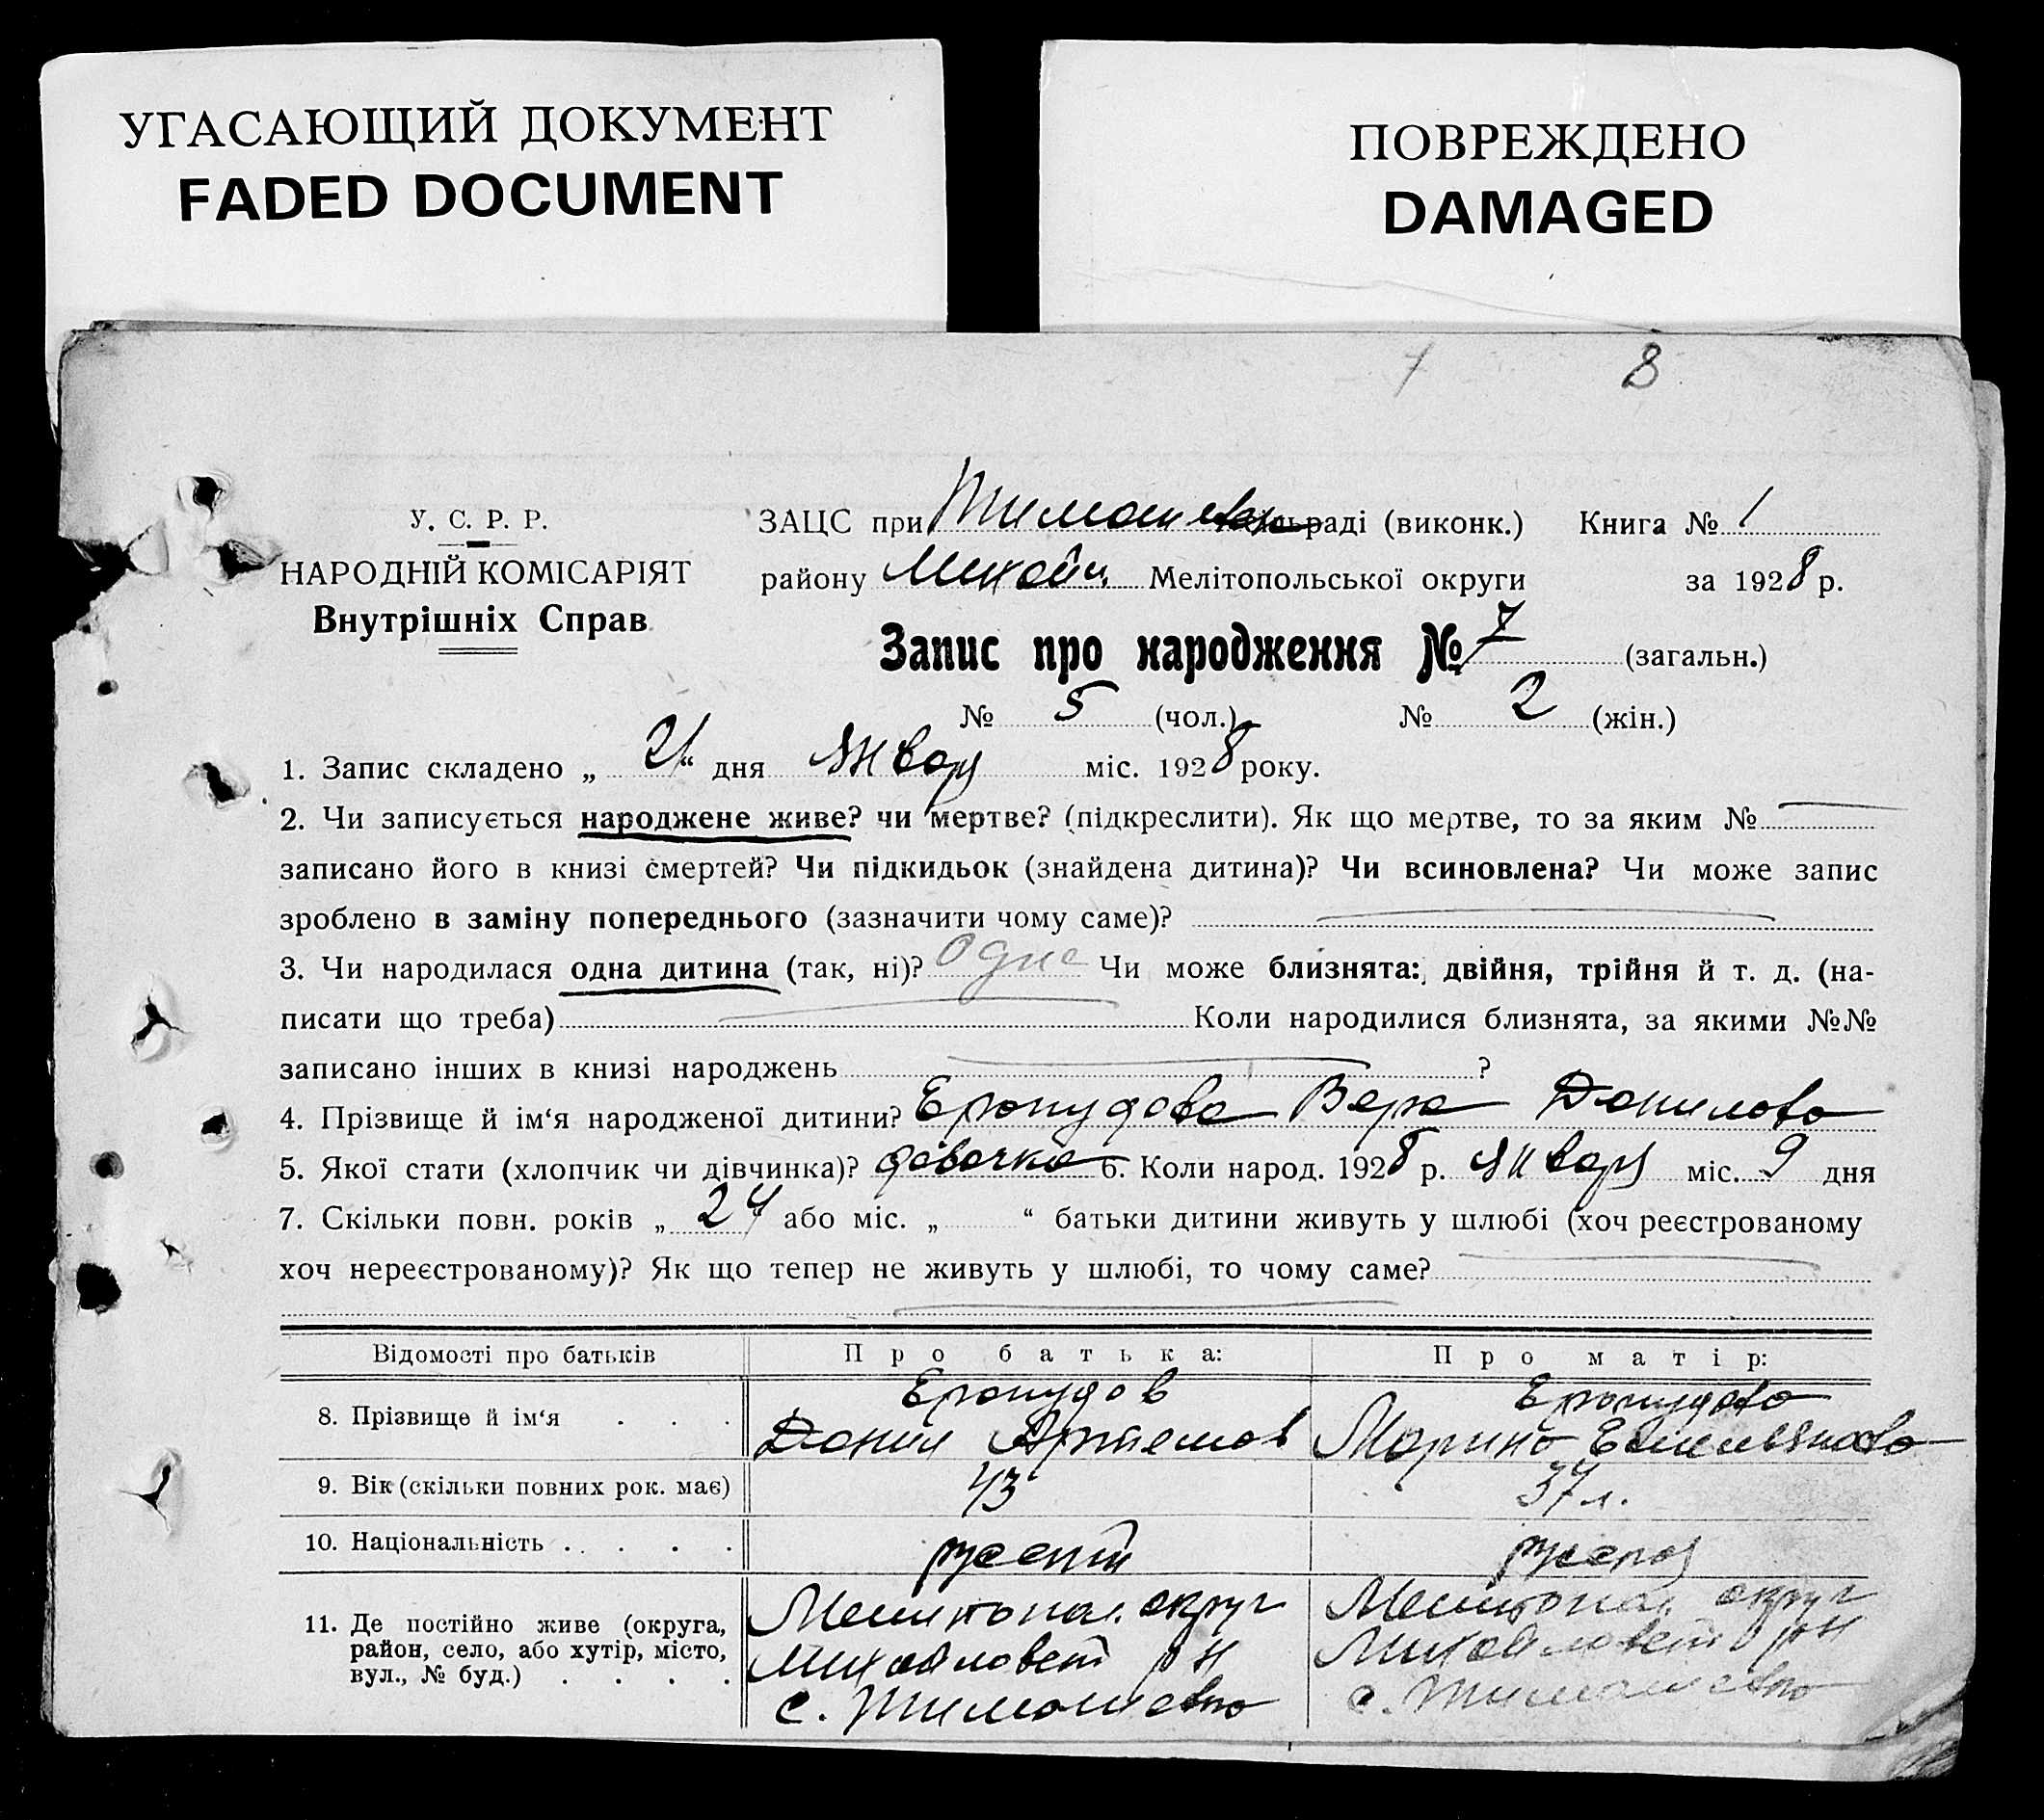 УГАСАЮЩИЙ ДОКУМЕНТ
FADED DOCUMENT
ПОВРЕЖДЕНО
DAMAGED
8
У. С. Р. Р.
НАРОДНІЙ КОМІСАРІЯТ
Внутрішніх Справ
ЗАЦС при Тимошев раді (виконк.) Книга № 1
району Михайл Мелітопольської округи за 1928 р.
Запис про народження № 7 (загальн.)
№ 5 (чол.) № 2 (жін.)
1. Запис складено „ 21 “ дня Января міс. 1928 року.
2. Чи записується народжене живе? чи мертве? (підкреслити). Як що мертве, то за яким №
записано його в книзі смертей? Чи підкидьок (знайдена дитина)? Чи всиновлена? Чи може запис
зроблено в заміну попереднього (зазначити чому саме)?
3. Чи народилася одна дитина (так, ні)? Одне Чи може близнята: двійня, трійня й т. д. (на-
писати що треба) Коли народилися близнята, за якими №№
записано інших в книзі народжень ?
4. Прізвище й ім‘я народженої дитини? Вера Данилова
5. Якої стати (хлопчик чи дівчинка)? девочка 6. Коли народ. 1928 р. Января міс. 9 дня
7. Скільки повн. років „ 24 “ або міс. „ “ батьки дитини живуть у шлюбі (хоч реєстрованому
хоч нереєстрованому)? Як що тепер не живуть у шлюбі, то чому саме?
Відомості про батьків Про батька: Про матір:
8. Прізвище й ім‘я
Данил Артемов Марина Емельянова
9. Вік (скільки повних рок. має) 43 37 л.
10. Національність русский русская
11. Де постійно живе (округа, район, село, або хутір, місто, вул., № буд.)
Мелитопол. округ Мелитопол. округ
Михайловский р н Михайловский р н
с. Тимошевка с. Тимошевка